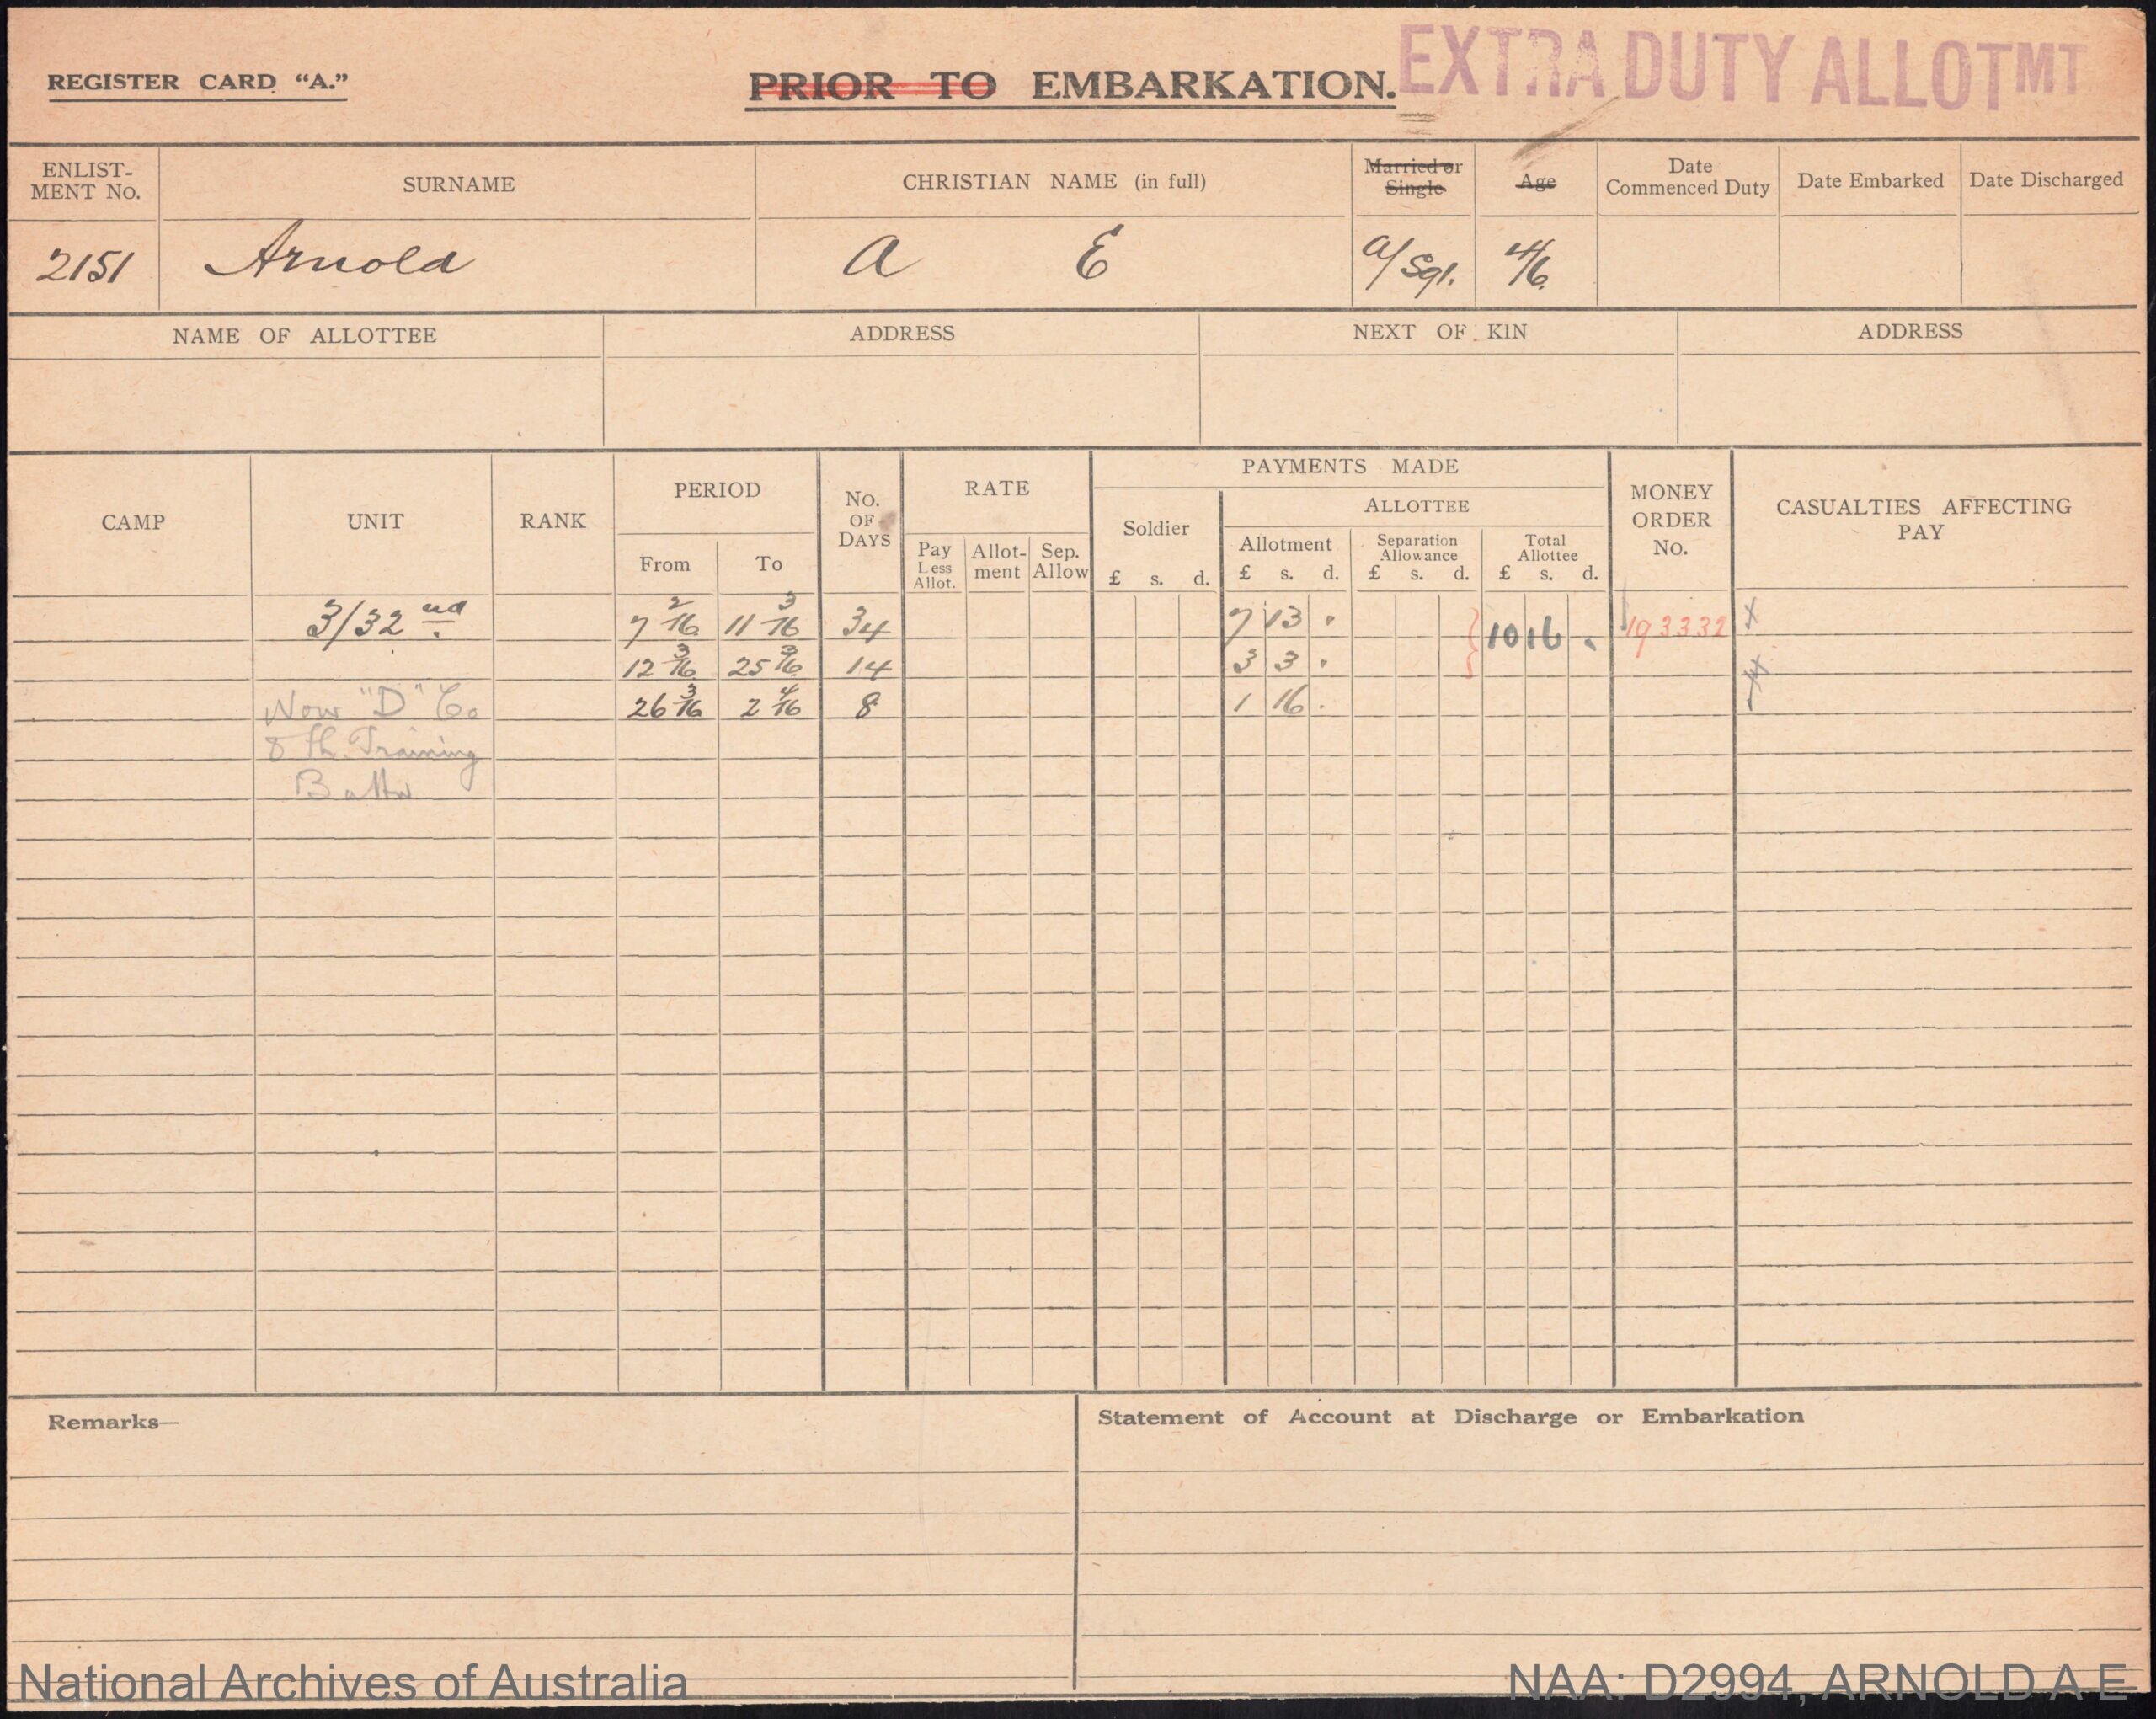 REGISTER CARD "A."
PRIOR TO EMBARKATION.
EXTRA DUTY ALLOTMT
ENLIST-
MENT No.
SURNAME
CHRISTIAN NAME (in full)
Married or
Single
Age
Date
Commenced Duty
Date Embarked
Date Discharged
2151 Arnold A E a/Sgt. 4/6
NAME OF ALLOTTEE
ADDRESS
NEXT OF KIN
ADDRESS
CAMP
UNIT
RANK
PERIOD
From To
No.
OF
DAYS
RATE
Pay
Less
Allot.
Allot-
ment
Sep.
Allow
PAYMENTS MADE
Soldier
£ s. d.
ALLOTTEE
Allotment
£ s. d.
Separation
Allowance
£ s. d.
Total
Allottee
£ s. d.
MONEY
ORDER
No.
CASUALTIES AFFECTING
PAY
3/32nd 7 2/16 11 3/16 34 7 13 . 10 16 . 193332 x
12 3/16 25 3/16 14 3 3 .
Now "D" Co 26 3/16 2 4/16 8 1 16 .
8th Training
Battn
Remarks—
Statement of Account at Discharge or Embarkation
National Archives of Australia
NAA: D2994, ARNOLD A E